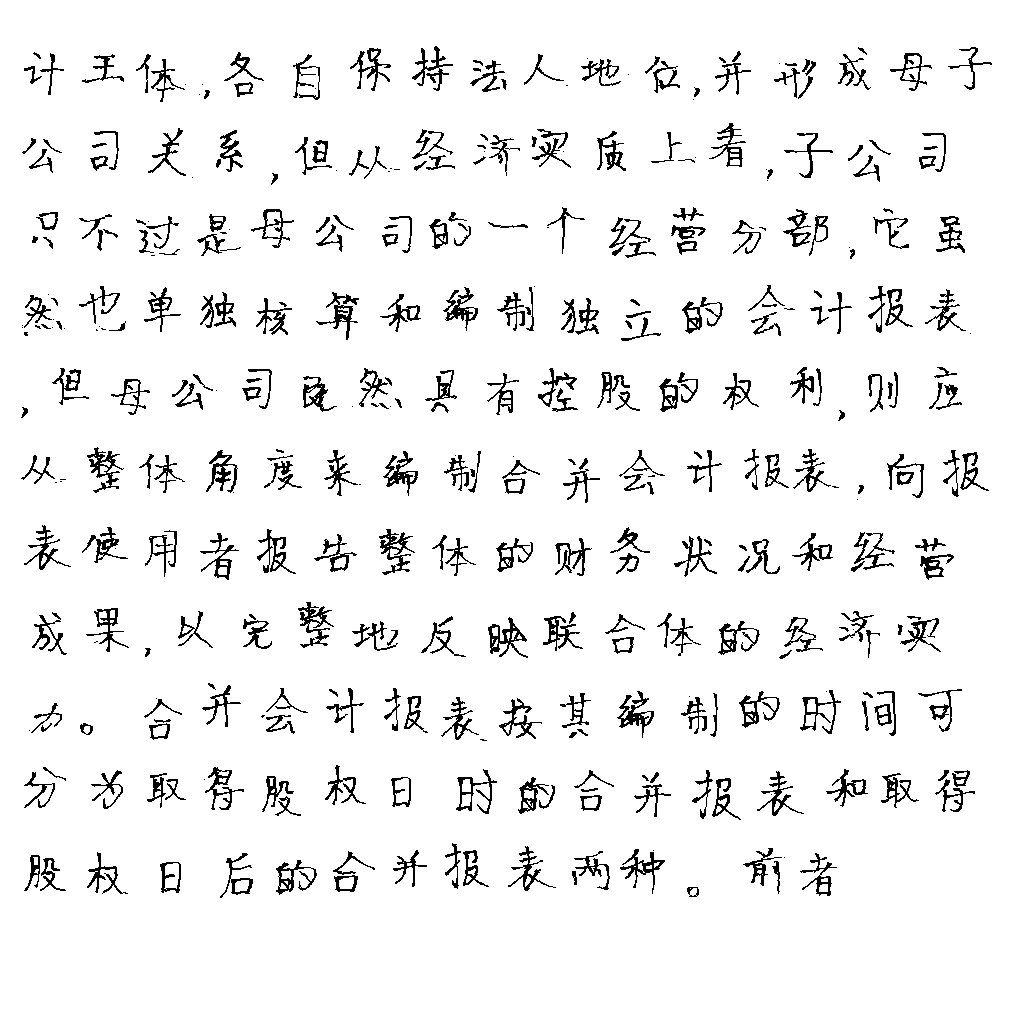 计王体,各自保持法人地位,并形成母子
公司关系,但从经济实质上看,子公司
只不过是母公司的一个经营分部,它虽
然也单独核算和编制独立的会计报表
,但母公司既然具有控股的权利,则应
从整体角度来编制合并会计报表,向报
表使用者报告整体的财务状况和经营
成果,以完整地反映联合体的经济实
力。合并会计报表按其编制的时间可
分为取得股权日时的合并报表和取得
股权日后的合并报表两种。前者